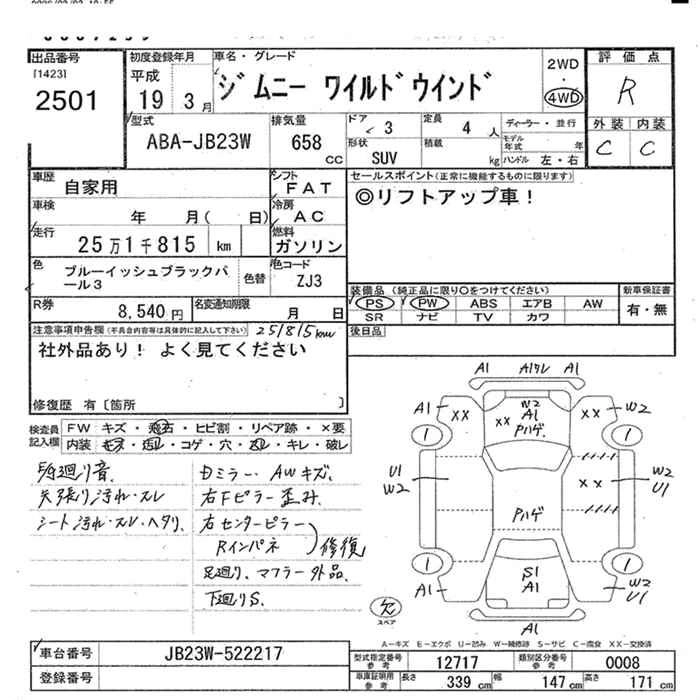 出品番号
[1423]
2501
初度登録年月
平成
19 3月
車名・グレード
ジムニー ワイルドウインド
2WD
・
4WD
評価点
R
外装 内装
C C
型式
ABA-JB23W
排気量
658
CC
ドア 3
形状
SUV
定員 4 人
積載 kg
ディーラー・並行
モデル年式 年
ハンドル 左・右
車歴
自家用
シフト
FAT
車検
年 月( 日)
冷房
AC
走行
25万1千815 km
燃料
ガソリン
色
ブルーイッシュブラックパール3
色替
色コード
ZJ3
R券
8,540円
名変通知期限
月 日
セールスポイント(正常に機能するものに限ります)
◎リフトアップ車!
装備品 (純正品に限り○をつけてください)
PS PW ABS エアB AW
SR ナビ TV カワ
新車保証書
有・無
後日品
注意事項申告欄(不具合内容等は具体的に記入して下さい)
251815km
社外品あり! よく見てください
修復歴 有〔箇所 〕
検査員記入欄
FW キズ・飛石・ヒビ割・リペア跡・×要
内装 キズ・汚レ・コゲ・穴・スレ・キレ・破レ
足廻り音.
天張り汚れ・スレ
シート汚れ・スレ・ヘタリ.
Dミラー・AWキズ.
右Fピラー歪み.
右センターピラー
Rインパネ
修復
足廻り、マフラー外品.
下廻りS.
A1 A1ワレ A1
A1 XX
W2
A1
XX
Pハゲ.
XX W2
1 1
U1
W2
XX
W2
U1
Pハゲ
1 1
S1
A1
A1
W2
U1
A1
欠
スペア
A-キズ E-エクボ U-凹み W-補修跡 S-サビ C-腐食 XX-交換済
車台番号
JB23W-522217
登録番号
型式指定番号
参考
12717
類別区分番号
参考
0008
車庫証明用
参考
長さ 339 cm
幅 147 cm
高さ 171 cm